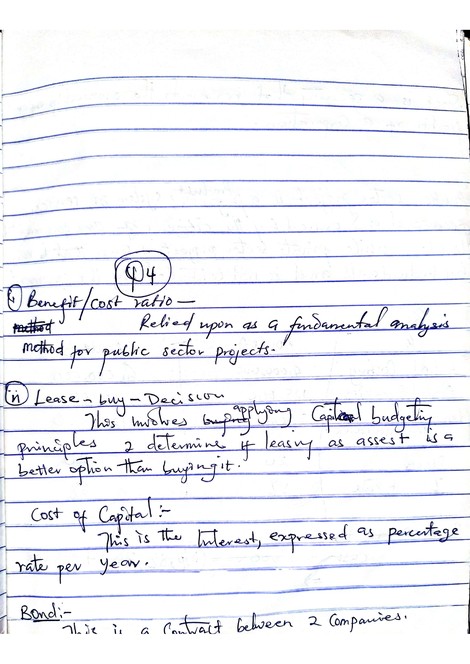 Q4
i) Benefit/cost ratio —
method Relied upon as a fundamental analysis
method for public sector projects.
ii) Lease - buy - Decision
This involves applying Capital budgeting
principles 2 determine if leasing as assest is a
better option than buying it.
Cost of Capital :-
This is the Interest, expressed as percentage
rate per year.
Bond:-
This is a Contract between 2 Companies.